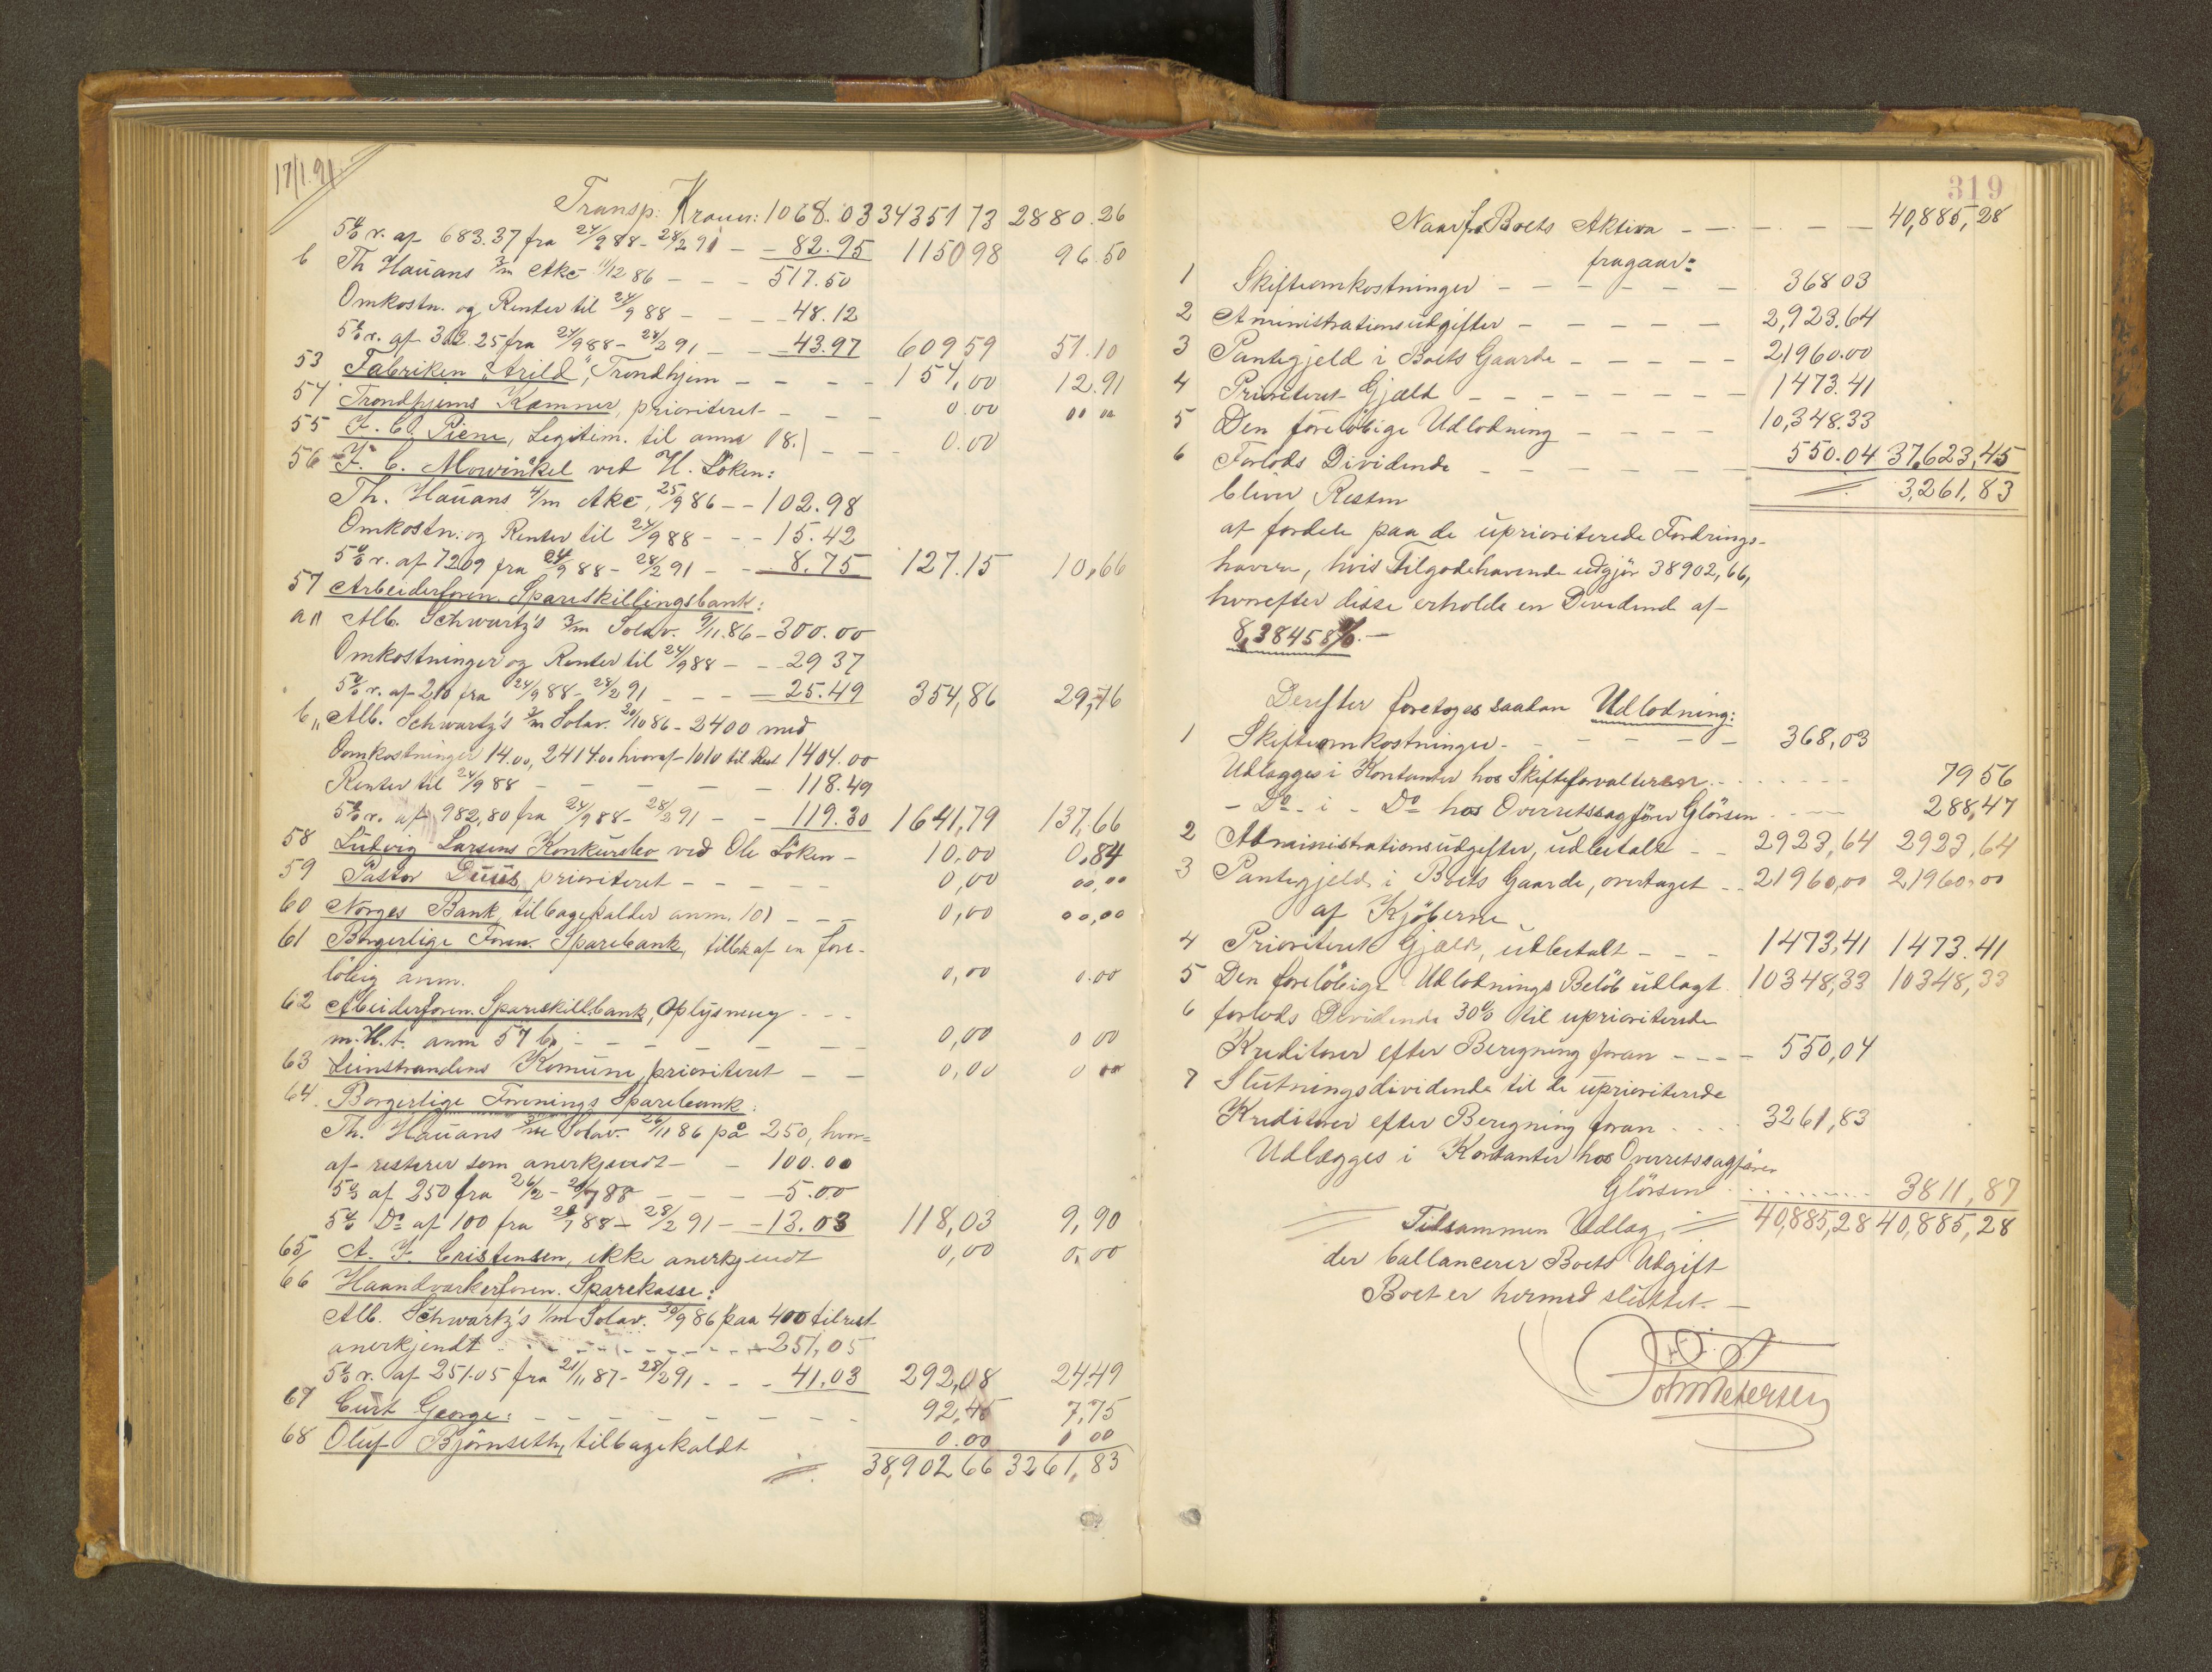 17/1.91.
Transp: Kroner: 1068.03 34351 73 2880.26
5% r. af 683.37 fra 24/9 88 - 28/2 91 - - 82.95 1150 98 96.50
b Th Hauans 3/m Akc 11/12 86 - - - 517.50
Omkostn. og Renter til 24/9 88 - - - 48.12
5% r. af 362.25 fra 24/9 88 - 28/2 91 - - 43.97 609 59 51.10
53 Fabriken "Arild", Trondhjem - - - - 154,00 12.91
54 Trondhjems Kæmner, prioriteret - - - 0.00 00 00
55 F. C. Piene, Legitim. til anm 18.) - - - 0.00
56 J. C. Mowinkel ved H. Löken:
Th. Hauans 4/m Akc, 25/9 86 - - 102.98
Omkostn: og Renter til 24/9 88 - - - 15.42
5% r. af 72.09 fra 24/9 88 - 28/2 91 - - 8.75 127.15 10,66
57 Arbeiderforen. Spareskillingsbank:
a" Alb. Schwartz's 3/m Solav. 9/11.86 - 300.00
Omkostninger og Renter til 24/9 88 - - 29 37
5% r. af 210 fra 24/9 88 - 28/2 91 - - - 25.49 354,86 29,76
b" Alb. Schwartz's 3/m Solav. 30/10 86 - 2400 med
Oomkostninger 14.00, 2414.00 hvoraf 1010 til Rest 1404.00
Renter til 24/9 88 - - - - - 118.49
5% r. af 982,80 fra 24/9 88 - 28/2 91 - - 119.30 1641,79 137,66
58 Ludvig Larsens Konkursbo ved Ole Löken - 10,00 0,84
59 Pastor Duus, prioriteret - - - - - 0,00 00,00
60 Norges Bank, tilbagekalder anm. 10) - - - 0,00 00,00
61 Borgerlige Foren. Sparebank, tilbk af en fore-
löbig anm. 0,00 0.00
62 Abeiderforen. Spareskillbank, Oplysning - - -
m. H. t. anm 57 b) - - - - - - 0,00 0 00
63 Leinstrandens Komune, prioriteret - - 0,00 0 00
64. Borgerlige Forenings Sparebank:
Th. Hauans 3/m Solav. 26/11 86 på 250, hvor=
af resterer som anerkjendt - - 100.00
5% af 250 fra 26/2 - 20/7 88 - - - 5.00
5% Do af 100 fra 20/7 88 - 28/2 91 - - 13.03 118,03 9,90
65, A. F. Cristensen, ikke anerkjendt 0,00 0,00
66 Haandværkerforen. Sparekasse:
Alb. Schwartz's 1/m Solav. 30/9 86 paa 400 til rest
anerkjendt - - - - - - - 251,05
5% r. af 251.05 fra 21/11 87 - 28/2 91 - - - 41.03 292,08 24.49
67 Curt George: - - - - - - - - 92,45 7,75
68 Oluf Björnseth, tilbagekaldt 0.00 0 00
38,902 66 3261,83
319
Naar fra Boets Aktiva - - - - - 40,885,28
fragaar:
1 Skifteomkostninger - - - - - - 368 03
2 Aministrationsudgifter - - - - - 2,923.64
3 Pantegjeld i Boets Gaarde - - - - 21960.00
4 Prioriteret Gjæld - - - - - - - - 1473.41
5 Den foreløbige Udlodning - - - - 10,348.33
6 Forlods Dividende - - - - - - 550.04 37,623,45
bliver Resten 3,261,83
at fordele paa de uprioriterede Fordrings-
havere, hvis Tilgodehavende udgjör 38902,66,
hvorefter disse erholde en Dividende af
8,38458%.-
Derefter foretoges saadan Udlodning:
1 Skifteomkostninger - - - - - - 368,03
Udlægges i Kontanter hos Skifteforvalteren - - - 79 56
- Do - i - Do hos Overretssagförer Glörsen - - - 288,47
2 Administrationsudgifter, udbetalt - - 2923,64 2923,64
3 Pantegjeld i Boets Gaarde, overtaget - - 21960,00 21960,00
af Kjöberne
4 Prioriteret Gjæld, udbetalt - - - 1473,41 1473.41
5 Den forelöbige Udlodnings Belöb udlagt. 10348,33 10348,33
6 forlods Dividende 30% til uprioriterede
Kreditorer efter Beregning foran - - - - 550,04
7 Slutningsdividende til de uprioriterede
Kreditorer efter Beregning foran - - - - 3261,83
Udlægges i Kontanter hos Overretssagförer
Glörsen - - - - - 3811,87
Tilsammen Udlæg, 40,885,28 40,885,28
der ballancerer Boets Udgift
Boet er hermed sluttet. -